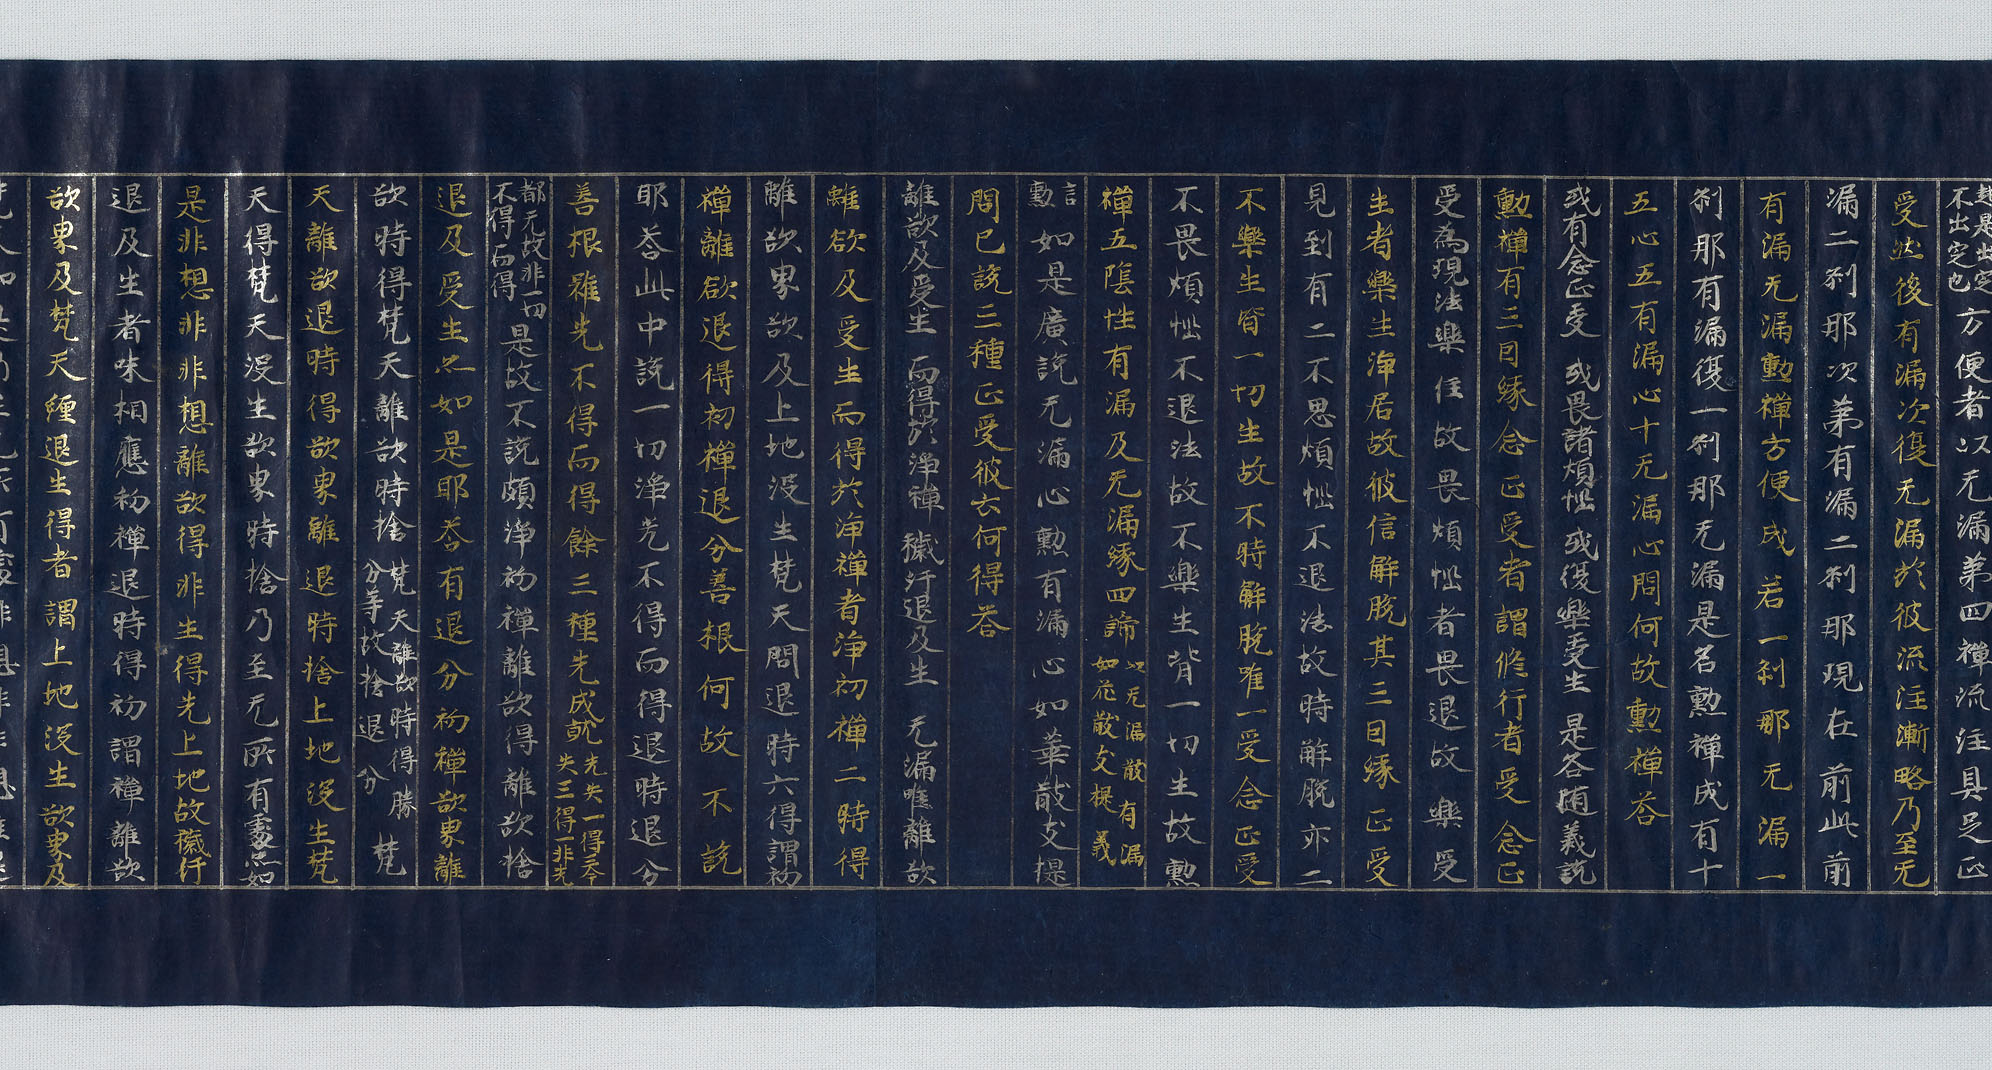 起是出定不出定也方便者以无漏第四禪流注具足正
受然後有漏次復无漏於彼流注漸略乃至无
漏二刹那次第有漏二刹那現在前此前
有漏无漏勳禪方便成若一刹那无漏一
刹那有漏復一刹那无漏是名勳禪成有十
五心五有漏心十无漏心問何故勳禪答
或有念正受或畏諸煩惱或復樂受生是各随義說
勳禪有三因緣念正受者謂修行者受念正
受為現法樂住故畏煩惱者畏退故樂受
生者樂生淨居故彼信解脫其三因緣正受
見到有二不思煩惱不退法故時解脫亦二
不樂生背一切生故不時解脫唯一受念正受
不畏煩惱不退法故不樂生背一切生故勳
禪五陰性有漏及无漏緣四諦以无漏散有漏如花散支提義
言勳如是廣說无漏心勳有漏心如華散支提
問已說三種正受彼云何得答
離欲及受生而得於淨禪穢汙退及生无漏唯離欲
離欲及受生而得於淨禪者淨初禪二時得
離欲界欲及上地沒生梵天問退時六得謂初
禪離欲退得初禪退分善根何故不說
耶答此中說一切淨先不得而得退時退分
善根雖先不得而得餘三種先成就先失一得三今失三得一非先
都无故非一切不得而得是故不說頗淨初禪離欲得離欲捨
退及受生亦如是耶答有退分初禪欲界離
欲時得梵天離欲時捨梵天離欲時得勝分等故捨退分梵
天離欲退時得欲界離退時捨上地沒生梵
天得梵天沒生欲界時捨乃至无所有處亦如
是非想非非想離欲得非生得先上地故穢汙
退及生者味相應初禪退時得初謂禪離欲
欲界及梵天纏退生得者謂上地沒生欲界及